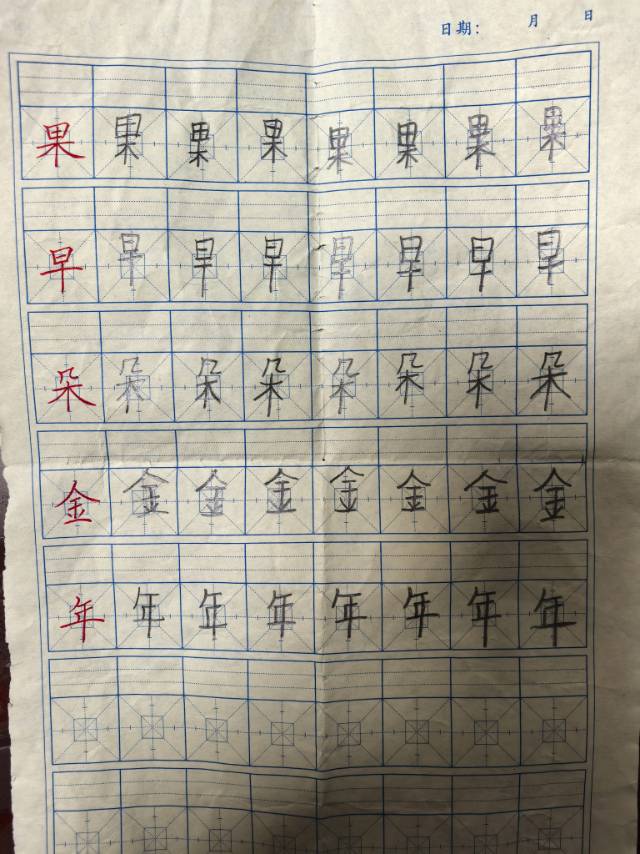 日期: 月 日
果 果 果 果 果 果 果 果
早 早 早 早 早 早 早 早
朵 朵 朵 朵 朵 朵 朵 朵
金 金 金 金 金 金 金 金
年 年 年 年 年 年 年 年